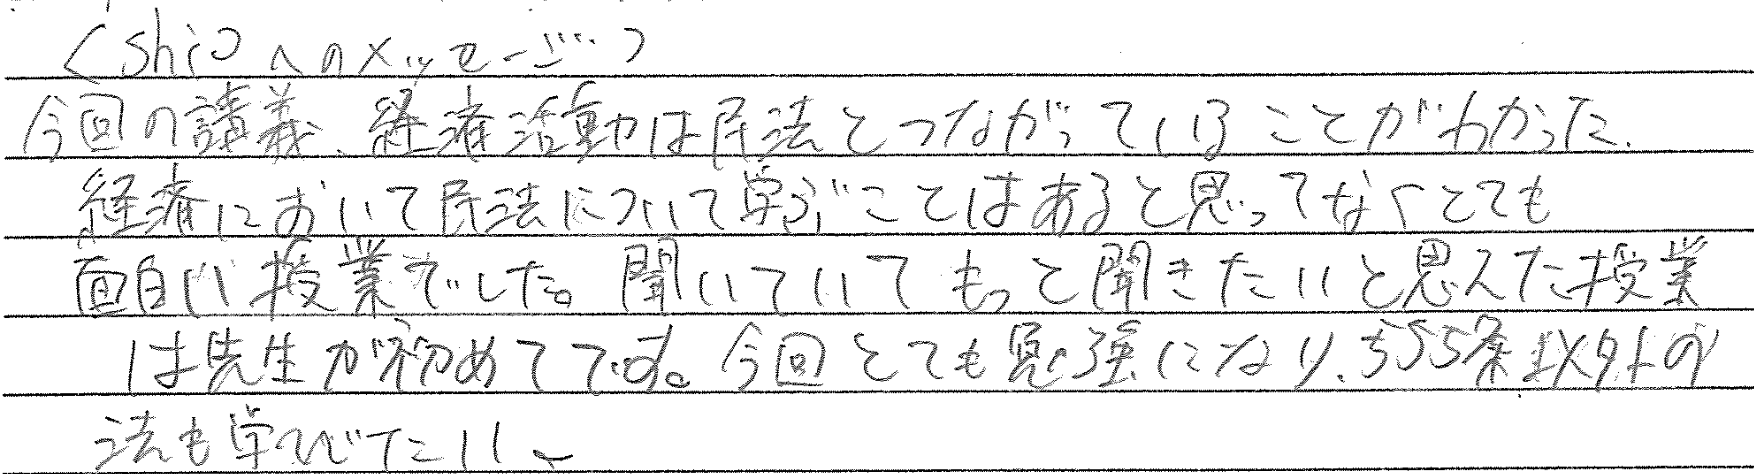 <Shioへのメッセージ…>
今回の講義、経済活動は民法とつながっていることがわかった.
経済において民法について学ぶことはあると思ってなくとても
面白い授業でした。聞いていてもっと聞きたいと思えた授業
は先生が初めてです。今回とても勉強になり、555条以外の
法も学びたい